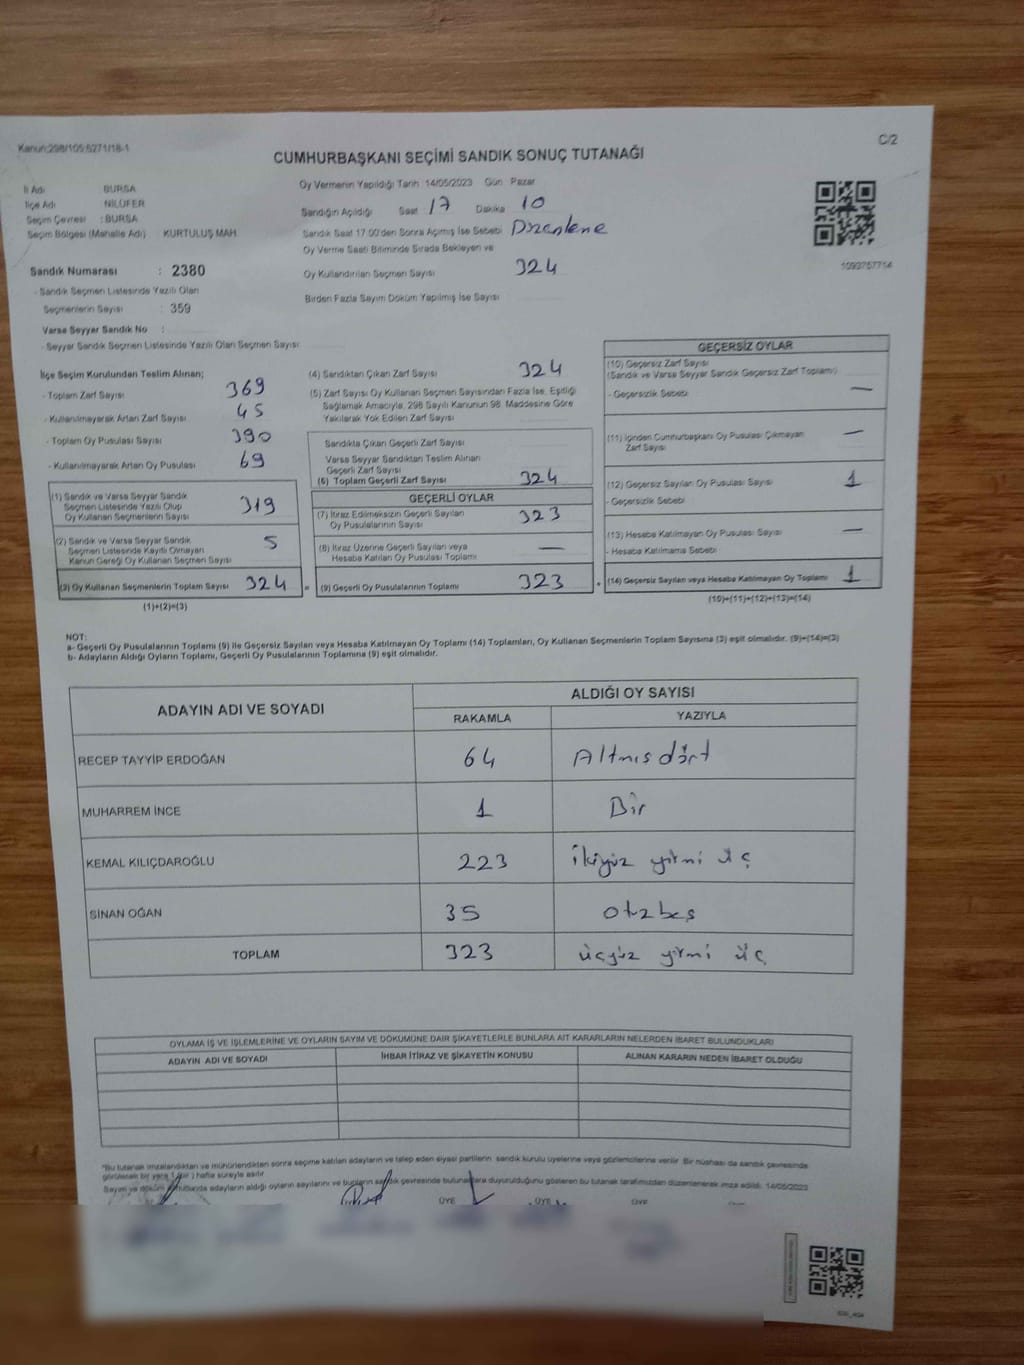 Kanun:298/105;6271/18-1
C/2
CUMHURBAŞKANI SEÇİMİ SANDIK SONUÇ TUTANAĞI
İl Adı BURSA
İlçe Adı NİLÜFER
Seçim Çevresi : BURSA
Seçim Bölgesi (Mahalle Adı) : KURTULUŞ MAH
Oy Vermenin Yapıldığı Tarih :14/05/2023 Gün Pazar
Sandığın Açıldığı Saat : 17 Dakika 10
Sandık Saat 17.00'den Sonra Açımış İse Sebebi Düzenleme
Oy Verme Saati Bitiminde Sırada Bekleyen ve
Oy Kullandırılan Seçmen Sayısı 324
Birden Fazla Sayım Döküm Yapılmış İse Sayısı
1093757714
Sandık Numarası : 2380
- Sandık Seçmen Listesinde Yazılı Olan
Seçmenlerin Sayısı : 359
Varsa Seyyar Sandık No :
- Seyyar Sandık Seçmen Listesinde Yazılı Olan Seçmen Sayısı:
İlçe Seçim Kurulundan Teslim Alınan;
- Toplam Zarf Sayısı 369
- Kullanılmayarak Artan Zarf Sayısı 45
- Toplam Oy Pusulası Sayısı 390
- Kullanılmayarak Artan Oy Pusulası 69
(1) Sandık ve Varsa Seyyar Sandık
Seçmen Listesinde Yazılı Olup
Oy Kullanan Seçmenlerin Sayısı 319
(2) Sandık ve Varsa Seyyar Sandık
Seçmen Listesinde Kayıtlı Olmayan
Kanun Gereği Oy Kullanan Seçmen Sayısı 5
(3) Oy Kullanan Seçmenlerin Toplam Sayısı 324 =
(1)+(2)=(3)
(4) Sandıktan Çıkan Zarf Sayısı 324
(5) Zarf Sayısı Oy Kullanan Seçmen Sayısından Fazla İse, Eşitliği
Sağlamak Amacıyla, 298 Sayılı Kanunun 98. Maddesine Göre
Yakılarak Yok Edilen Zarf Sayısı
Sandıkta Çıkan Geçerli Zarf Sayısı
Varsa Seyyar Sandıktan Teslim Alınan
Geçerli Zarf Sayısı
(6) Toplam Geçerli Zarf Sayısı 324
GEÇERLİ OYLAR
(7) İtiraz Edilmeksizin Geçerli Sayılan
Oy Pusulalarının Sayısı 323
(8) İtiraz Üzerine Geçerli Sayılan veya
Hesaba Katılan Oy Pusulası Toplamı —
(9) Geçerli Oy Pusulalarının Toplamı 323 +
GEÇERSİZ OYLAR
(10) Geçersiz Zarf Sayısı
(Sandık ve Varsa Seyyar Sandık Geçersiz Zarf Toplamı)
- Geçersizlik Sebebi —
(11) İçinden Cumhurbaşkanı Oy Pusulası Çıkmayan
Zarf Sayısı —
(12) Geçersiz Sayılan Oy Pusulası Sayısı 1
- Geçersizlik Sebebi
(13) Hesaba Katılmayan Oy Pusulası Sayısı —
- Hesaba Katılmama Sebebi
(14) Geçersiz Sayılan veya Hesaba Katılmayan Oy Toplamı 1
(10)+(11)+(12)+(13)=(14)
NOT:
a- Geçerli Oy Pusulalarının Toplamı (9) ile Geçersiz Sayılan veya Hesaba Katılmayan Oy Toplamı (14) Toplamları, Oy Kullanan Seçmenlerin Toplam Sayısına (3) eşit olmalıdır. (9)+(14)=(3)
b- Adayların Aldığı Oyların Toplamı, Geçerli Oy Pusulalarının Toplamına (9) eşit olmalıdır.
ADAYIN ADI VE SOYADI ALDIĞI OY SAYISI
RAKAMLA YAZIYLA
RECEP TAYYİP ERDOĞAN 64 Altmış dört
MUHARREM İNCE 1 Bir
KEMAL KILIÇDAROĞLU 223 ikiyüz yirmi üç
SİNAN OĞAN 35 otuzbeş
TOPLAM 323 üçyüz yirmi üç
OYLAMA İŞ VE İŞLEMLERİNE VE OYLARIN SAYIM VE DÖKÜMÜNE DAİR ŞİKAYETLERLE BUNLARA AİT KARARLARIN NELERDEN İBARET BULUNDUKLARI
ADAYIN ADI VE SOYADI İHBAR İTİRAZ VE ŞİKAYETİN KONUSU ALINAN KARARIN NEDEN İBARET OLDUĞU
*Bu tutanak imzalandıktan ve mühürlendikten sonra seçime katılan adayların ve talep eden siyasi partilerin sandık kurulu üyelerine veya gözlemcilerine verilir. Bir nüshası da sandık çevresinde
görülebilen bir yere 1 (bir) hafta süreyle asılır
Sayım ve döküm sonunda adayların aldığı oyların sayılarını ve bunların sandık çevresinde bulunanlara duyurulduğunu gösteren bu tutanak tarafımızdan düzenlenerek imza edildi. 14/05/2023
ÜYE ÜYE ÜYE